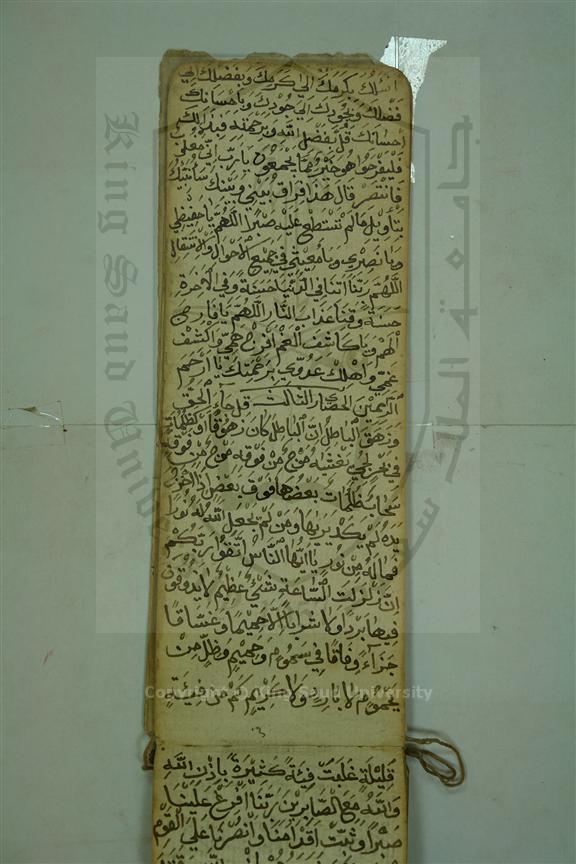 اسئلك بكرمك الى كرمك وبفضلك الى
فضلك وبجودك الى جودك وباحسانك
احسانك قل بفضل الله وبرحمته فبذلك
فليفرحوا هو خير مما يجمعون يا رب اني مغلوب
فانتصر قال هذا فراق بيني وبينك سانبئك
بتأويل ما لم تستطع عليه صبرا اللهم يا حفيظي
ويا نصيري ويا معيني في جميع الاحوال والانتقال
اللهم ربنا اتنا في الدنيا حسنة وفي الاخرة
حسنة وقنا عذاب النار اللهم يا فارج
الهم ويا كاشف الغم افرج همي واكشف
غمي واهلك عدوي برحمتك يا ارحم
الرحمين الحصار الثالث قل جاء الحق
وزهق الباطل ان الباطل كان زهوقا او كظلمات
في بحر لجي يغشيه موج من فوقه موج من فوقه
سحاب ظلمات بعضها فوق بعض اذا اخرج
يده لم يكد يريها ومن لم يجعل الله له نورا
فما له من نور يا ايها الناس اتقوا ربكم
ان زلزلت الساعة شئ عظيم لا يذوقون
فيها بردا ولا شرابا الا حميما وغساقا
جزاء وفاقا في سموم وحميم وظل من
يحموم لا بارد ولا كريم كم من فئة
قليلة غلبت فئة كثيرة باذن الله
والله مع الصابرين ربنا افرغ علينا
صبرا وثبت اقدامنا وانصرنا على القوم
King Saud University
جامعة الملك سعود
Copyright © King Saud University